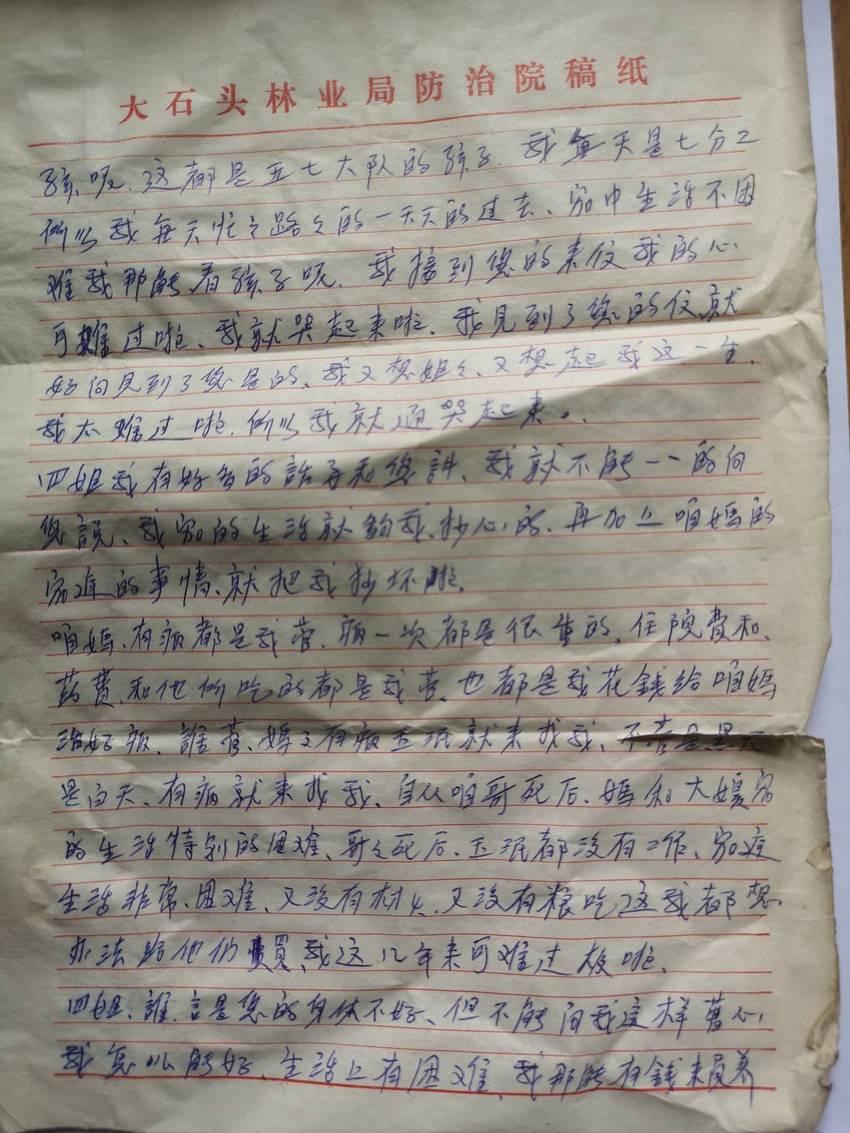 大石头林业局防治院稿纸
孩呢、这都是五七大队的孩子、我每天是七分工
所以我每天忙々路々的一天天的过去、家中生活不困
难我那能看孩子呢、我接到您的来信我的心
可难过啦、我就哭起来啦、我见到了您的信就
好向见到了您是的、我又想姐々、又想起我这一生、
我太难过啦、所以我就通哭起来。
四姐我有好多的話要和您讲、我就不能一一的向
您說、我家的生活就够我抄心的、再加上咱媽的
家庭的事情、就把我抄坏啦。
咱媽、有病都是我管、病一次都是很重的、住院費和
药費、和他所吃的都是我管、也都是我花錢給咱媽
治好病、誰管、媽々有病玉珉就来找我、不管是黑天
是白天、有病就来找我、自从咱哥死后、媽和大嫂家
的生活特别的困难、哥々死后、玉珉都没有工作、家庭
生活非常困难、又没有柈火、又没有粮吃这我都想
办法給他们買、我这几年来可难过极啦、
四姐、誰言是您的身体不好、但不能向我这样曹心、
我怎么能好、生活上有困难、我那能有錢来員养